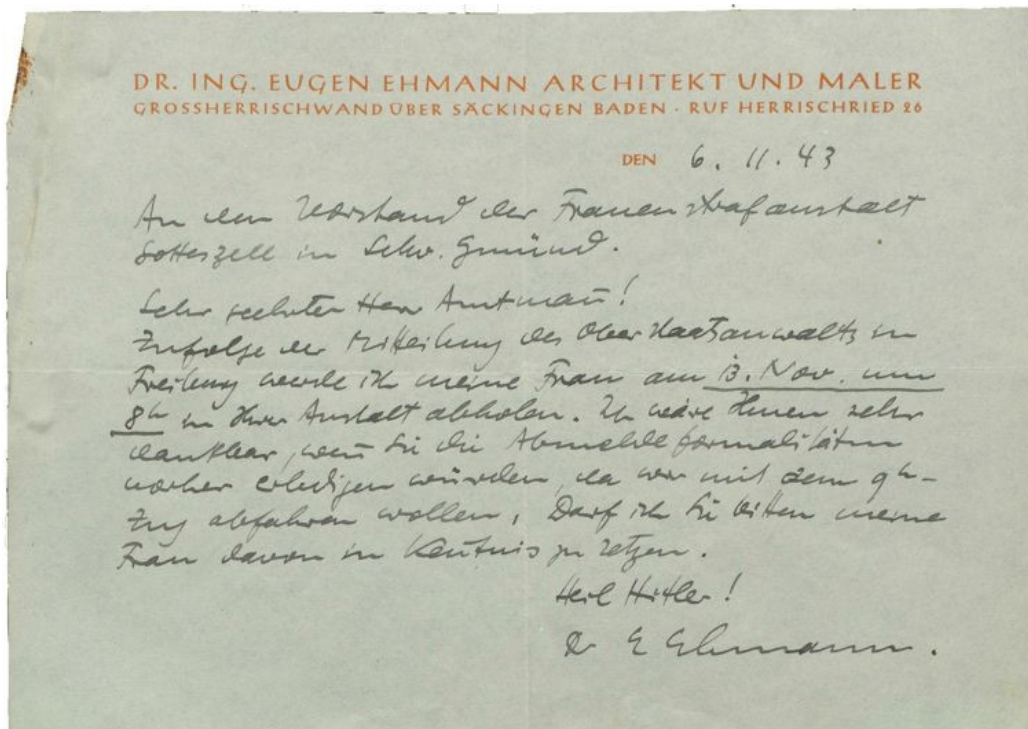 DR. ING. EUGEN EHMANN ARCHITEKT UND MALER
GROSSHERRISCHWAND ÜBER SÄCKINGEN BADEN · RUF HERRISCHRIED 26
DEN 6. 11. 43
An den Vorstand der Frauenstrafanstalt
Gotteszell in Schw. Gmünd.
Sehr geehrter Herr Amtmañ!
Zufolge der Mitteilung des Oberstaatsanwalts in
Freiburg werde ich meine Frau am 13. Nov. um
8h in Ihrer Anstalt abholen. Ich wäre Ihnen sehr
dankbar, weñ Sie die Abmeldeformalitäten
vorher erledigen würden, da wir mit dem 9h-
Zug abfahren wollen. Darf ich Sie bitten meine
Frau davon in Keñtnis zu setzen.
Heil Hitler!
Dr E Ehmann.